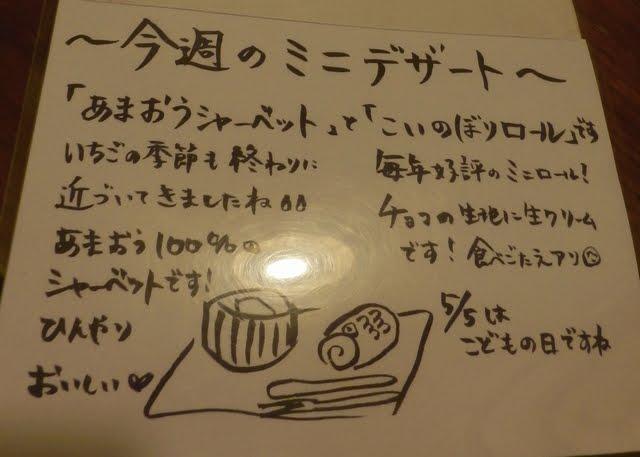 ～今週のミニデザート～
「あまおうシャーベット」と「こいのぼりロール」です
いちごの季節も終わりに
近づいてきましたね
あまおう100%の
シャーベットです!
ひんやり
おいしい♥
毎年好評のミニロール!
チョコの生地に生クリーム
です! 食べごたえアリ
5/5は
こどもの日ですね